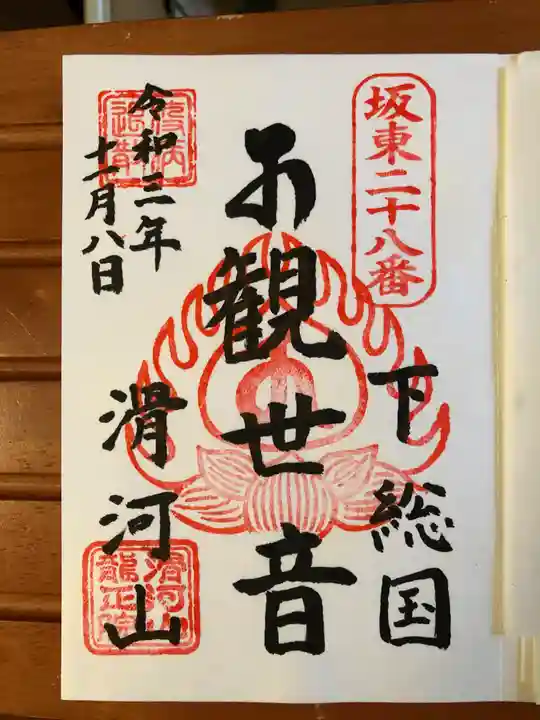 坂東二十八番
下総国
観世音
令和三年
十一月八日
滑河山
滑河山
龍正院